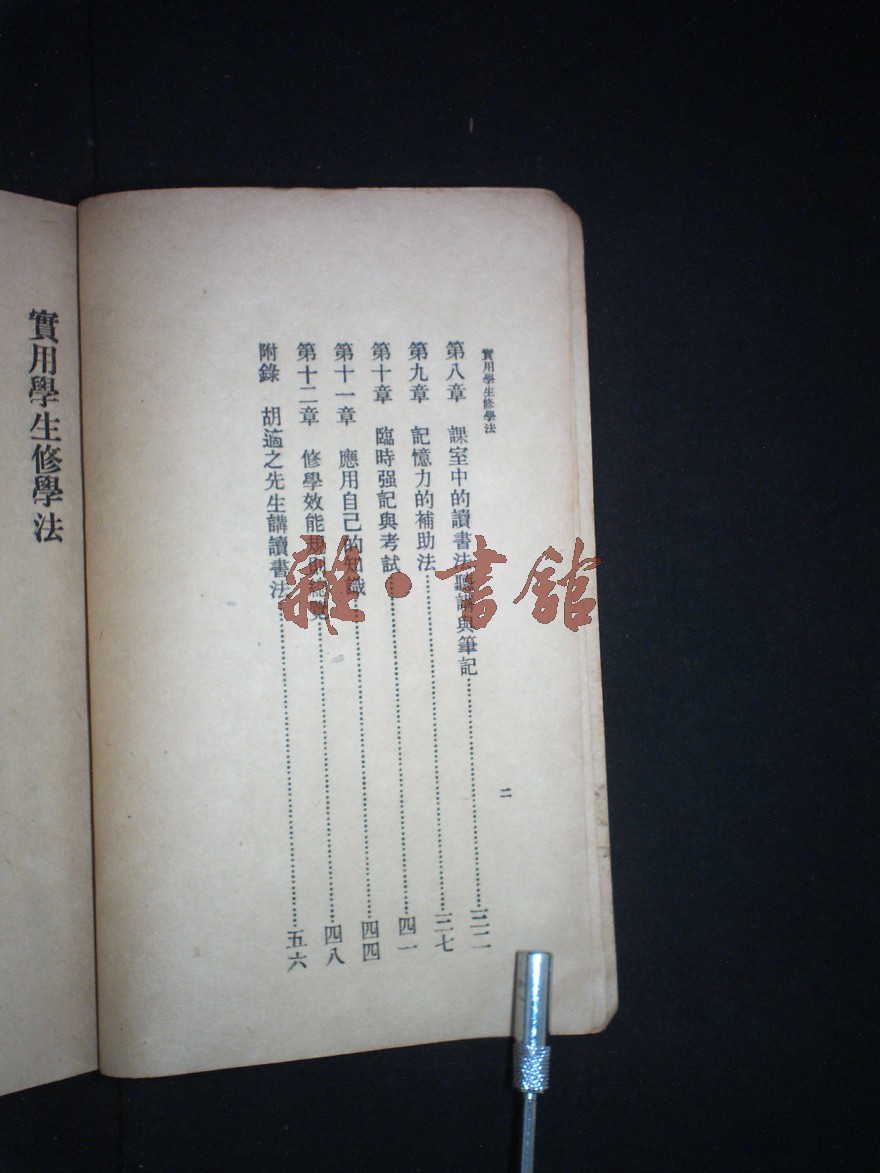 實用學生修學法
第八章　課室中的讀書法聽講與筆記…………三二
第九章　記憶力的補助法…………三七
第十章　臨時强記與考試…………四一
第十一章　應用自己的知識…………四四
第十二章　修學效能規則總覽…………四八
附錄　胡適之先生講讀書法…………五六
二
實用學生修學法
雜·書館